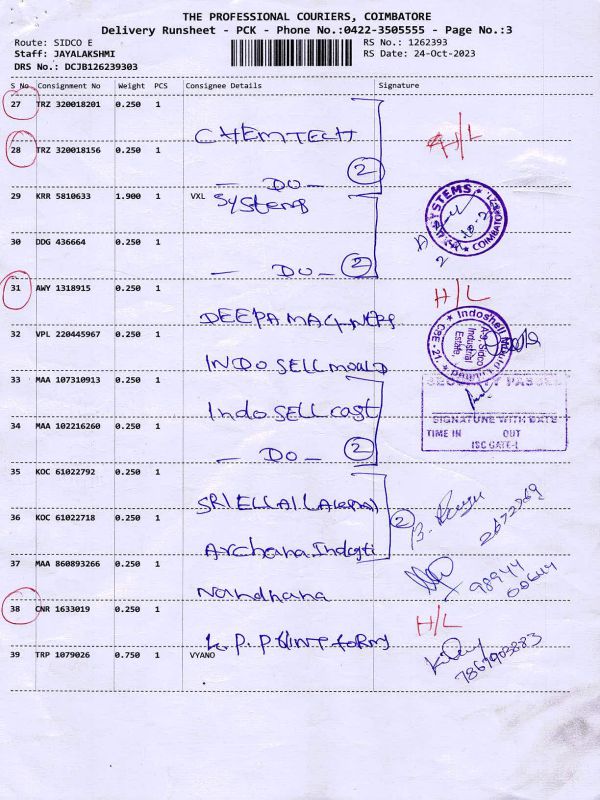 THE PROFESSIONAL COURIERS, COIMBATORE
Delivery Runsheet - PCK - Phone No.:0422-3505555 - Page No.:3
Route: SIDCO E
RS No.: 1262393
Staff: JAYALAKSHMI
RS Date: 24-Oct-2023
DRS No.: DCJB126239303
S No Consignment No Weight PCS Consignee Details Signature
27 TRZ 320018201 0.250 1
CHEMTECH
H/L
28 TRZ 320018156 0.250 1
— DO — 2
29 KRR 5810633 1.900 1 VXL
Systems
SYSTEMS
COIMBATORE
30 DDG 436664 0.250 1
— DO — 2
2
31 AWY 1318915 0.250 1
H/L
DEEPA MACHINERS
32 VPL 220445967 0.250 1
INDO SELL mould
Indoshell Mould Limited
CBE - 21.
A-9, Sidco
Industrial
Estate
33 MAA 107310913 0.250 1
Indo SELL cast
SECURITY PASSED
SIGNATURE WITH DATE
TIME IN OUT
ISC GATE-I
34 MAA 102216260 0.250 1
— DO — 2
35 KOC 61022792 0.250 1
SRI ELLAI
2
2672269
36 KOC 61022718 0.250 1
Archana Industi
37 MAA 860893266 0.250 1
Nandhana
98944
00644
38 CNR 1633019 0.250 1
H/L
K.P.P
39 TRP 1079026 0.750 1 VYANO
7867903883